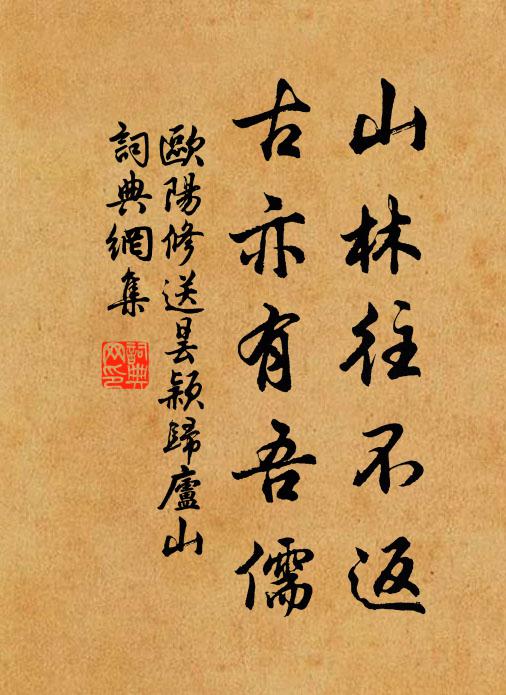 山林往不返
古亦有吾儒
歐陽修送昙颖歸廬山
詞典網集
詞典網印